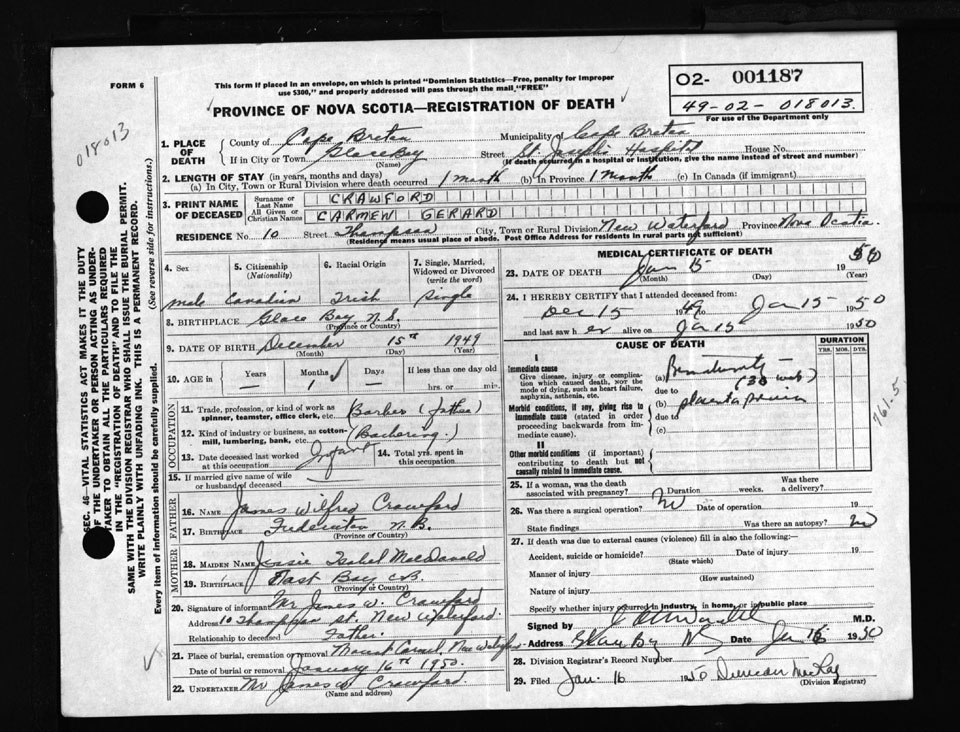 FORM 6
This form if placed in an envelope, on which is printed "Dominion Statistics—Free, penalty for improper
use $300," and properly addressed will pass through the mail "FREE"
PROVINCE OF NOVA SCOTIA—REGISTRATION OF DEATH
O2- 001187
49-02-018013
For use of the Department only
018013
SEC. 46—VITAL STATISTICS ACT MAKES IT THE DUTY
OF THE UNDERTAKER OR PERSON ACTING AS UNDER-
TAKER TO OBTAIN ALL THE PARTICULARS REQUIRED
IN THE "REGISTRATION OF DEATH" AND TO FILE THE
SAME WITH THE DIVISION REGISTRAR WHO SHALL ISSUE THE BURIAL PERMIT.
WRITE PLAINLY WITH UNFADING INK. THIS IS A PERMANENT RECORD.
Every item of information should be carefully supplied.
(See reverse side for instructions.)
1. PLACE OF DEATH
County of Cape Breton Municipality of Cape Breton
If in City or Town Glace Bay Street St. Joseph's Hospital House No.
(Name) (If death occurred in a hospital or institution, give the name instead of street and number)
2. LENGTH OF STAY (in years, months and days)
(a) In City, Town or Rural Division where death occurred 1 month (b) In Province 1 month (c) In Canada (if immigrant)
3. PRINT NAME OF DECEASED
Surname or Last Name CRAWFORD
All Given or Christian Names CARMEN GERARD
RESIDENCE No. 10 Street Thompson City, Town or Rural Division New Waterford Province Nova Scotia.
(Residence means usual place of abode. Post Office Address for residents in rural parts not sufficient)
4. Sex
male
5. Citizenship
(Nationality)
Canadian
6. Racial Origin
Irish
7. Single, Married,
Widowed or Divorced
(write the word)
Single
8. BIRTHPLACE Glace Bay N.S.
(Province or Country)
9. DATE OF BIRTH December 15th 1949
(Month) (Day) (Year)
10. AGE in
Years —
Months 1
Days —
If less than one day old
hrs. or min.
OCCUPATION
11. Trade, profession, or kind of work as
spinner, teamster, office clerk, etc. Barber (father)
12. Kind of industry or business, as cotton-
mill, lumbering, bank, etc. (Barbering.)
13. Date deceased last worked
at this occupation Infant
14. Total yrs. spent in
this occupation
15. If married give name of wife
or husband of deceased
FATHER
16. Name James Wilfred Crawford
17. Birthplace Fredericton N.B.
(Province of Country)
MOTHER
18. MAIDEN NAME Jessie Isabel MacDonald
19. BIRTHPLACE East Bay C.B.
(Province or Country)
20. Signature of informant Mr James W. Crawford
Address 10 Thompson St. New Waterford.
Relationship to deceased Father.
21. Place of burial, cremation or removal Mount Carmel, New Waterford
Date of burial or removal January 16th 1950.
22. UNDERTAKER Mr James W. Crawford.
(Name and address)
MEDICAL CERTIFICATE OF DEATH
23. DATE OF DEATH Jan 15 19 50
(Month) (Day) (Year)
24. I HEREBY CERTIFY that I attended deceased from:
Dec 15 1949 to Jan 15 1950
and last saw h er alive on Jan 15 1950
CAUSE OF DEATH
DURATION
YRS. MOS. DYS.
I
Immediate cause
Give disease, injury or complica-
tion which caused death, NOT the
mode of dying, such as heart failure,
asphyxia, asthenia, etc.
(a) Prematurity
due to (30 wk)
Morbid conditions, if any, giving rise to
immediate cause (stated in order
proceeding backwards from im-
mediate cause).
(b) placenta previa
due to
(c)
II
Other morbid conditions (if important)
contributing to death but not
causally related to immediate cause.
761.5
25. If a woman, was the death
associated with pregnancy? Duration weeks. Was there
a delivery?
26. Was there a surgical operation? no Date of operation 19
State findings Was there an autopsy? no
27. If death was due to external causes (violence) fill in also the following:
Accident, suicide or homicide? Date of injury 19
(State which)
Manner of injury
(How sustained)
Nature of injury
Specify whether injury occurred in industry, in home, or in public place
Signed by M.D.
Address Glace Bay NS Date Jan 16 1950
28. Division Registrar's Record Number
29. Filed Jan. 16 1950 Duncan MacKay
(Division Registrar)